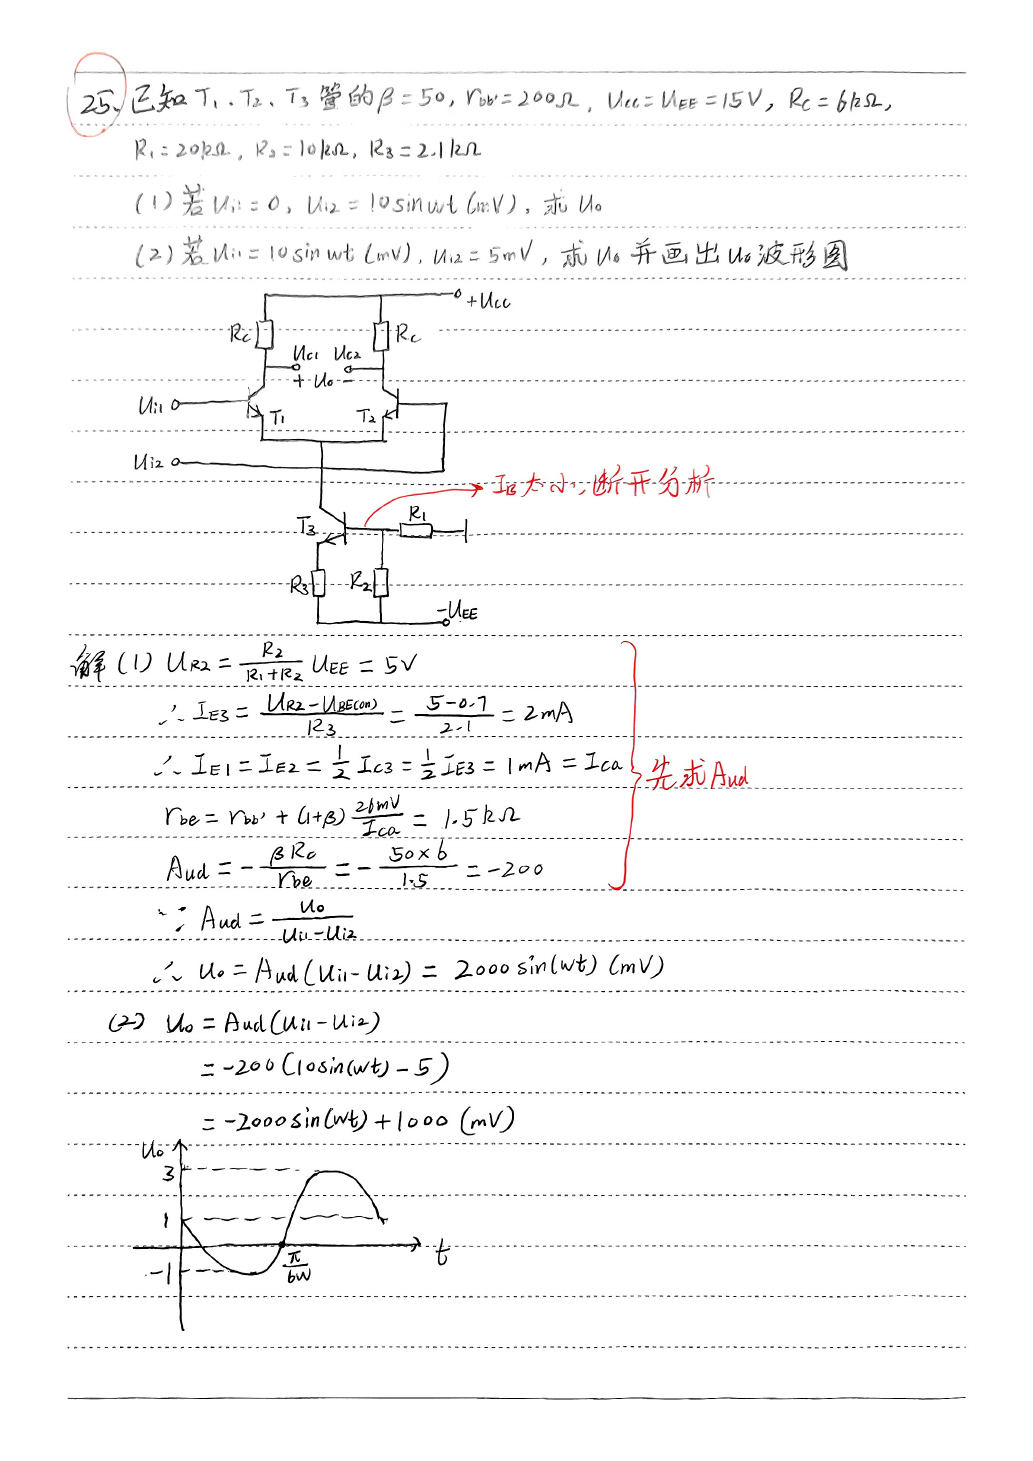 25、已知 T₁、T₂、T₃ 管的 β=50, rbb'=200Ω, Ucc=UEE=15V, Rc=6kΩ,
R₁=20kΩ, R₂=10kΩ, R₃=2.1kΩ
(1) 若 Ui1=0, Ui2=10sinwt (mV), 求 Uo
(2) 若 Ui1=10sinwt (mV), Ui2=5mV, 求 Uo 并画出 Uo 波形图
+Ucc
Rc Rc
Uc1 Uc2
+ Uo −
Ui1 T₁ T₂
Ui2
IB太小,断开分析
T₃ R₁
R₃ R₂
-UEE
解 (1) UR2 = R₂/(R₁+R₂) UEE = 5V
∴ IE3 = (UR2-UBE(on))/R₃ = (5-0.7)/2.1 = 2mA
∴ IE1 = IE2 = 1/2 Ic3 = 1/2 IE3 = 1mA = Ica
先求Aud
rbe = rbb' + (1+β) 26mV/Ica = 1.5kΩ
Aud = - βRc/rbe = - 50×6/1.5 = -200
∵ Aud = Uo/(Ui1-Ui2)
∴ Uo = Aud(Ui1-Ui2) = 2000sin(wt) (mV)
(2) Uo = Aud(Ui1-Ui2)
= -200(10sin(wt)-5)
= -2000sin(wt)+1000 (mV)
Uo
3
1
-1
π/6w
t